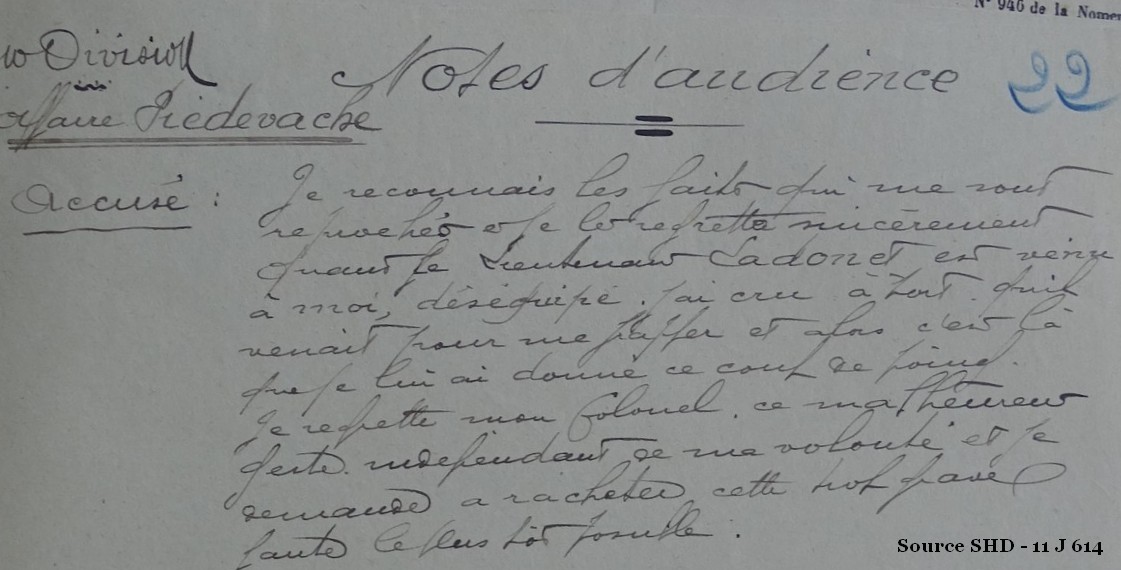 N° 946 de la Nomen
10 Division
Notes d'audience
22
affaire Piedevache
Accusé : Je reconnais les faits qui me sont
reprochés et je le regrette sincèrement
quant le Lieutenant Cadonet est venu
à moi, déséquipé. J'ai cru à tort qu'il
venait pour me frapper et alors c'est là
que je lui ai donné ce coup de poing.
Je regrette mon Colonel, ce malheureux
geste indépendant de ma volonté et je
demande a racheter cette trop grave
faute le plus tôt possible.
Source SHD - 11 J 614